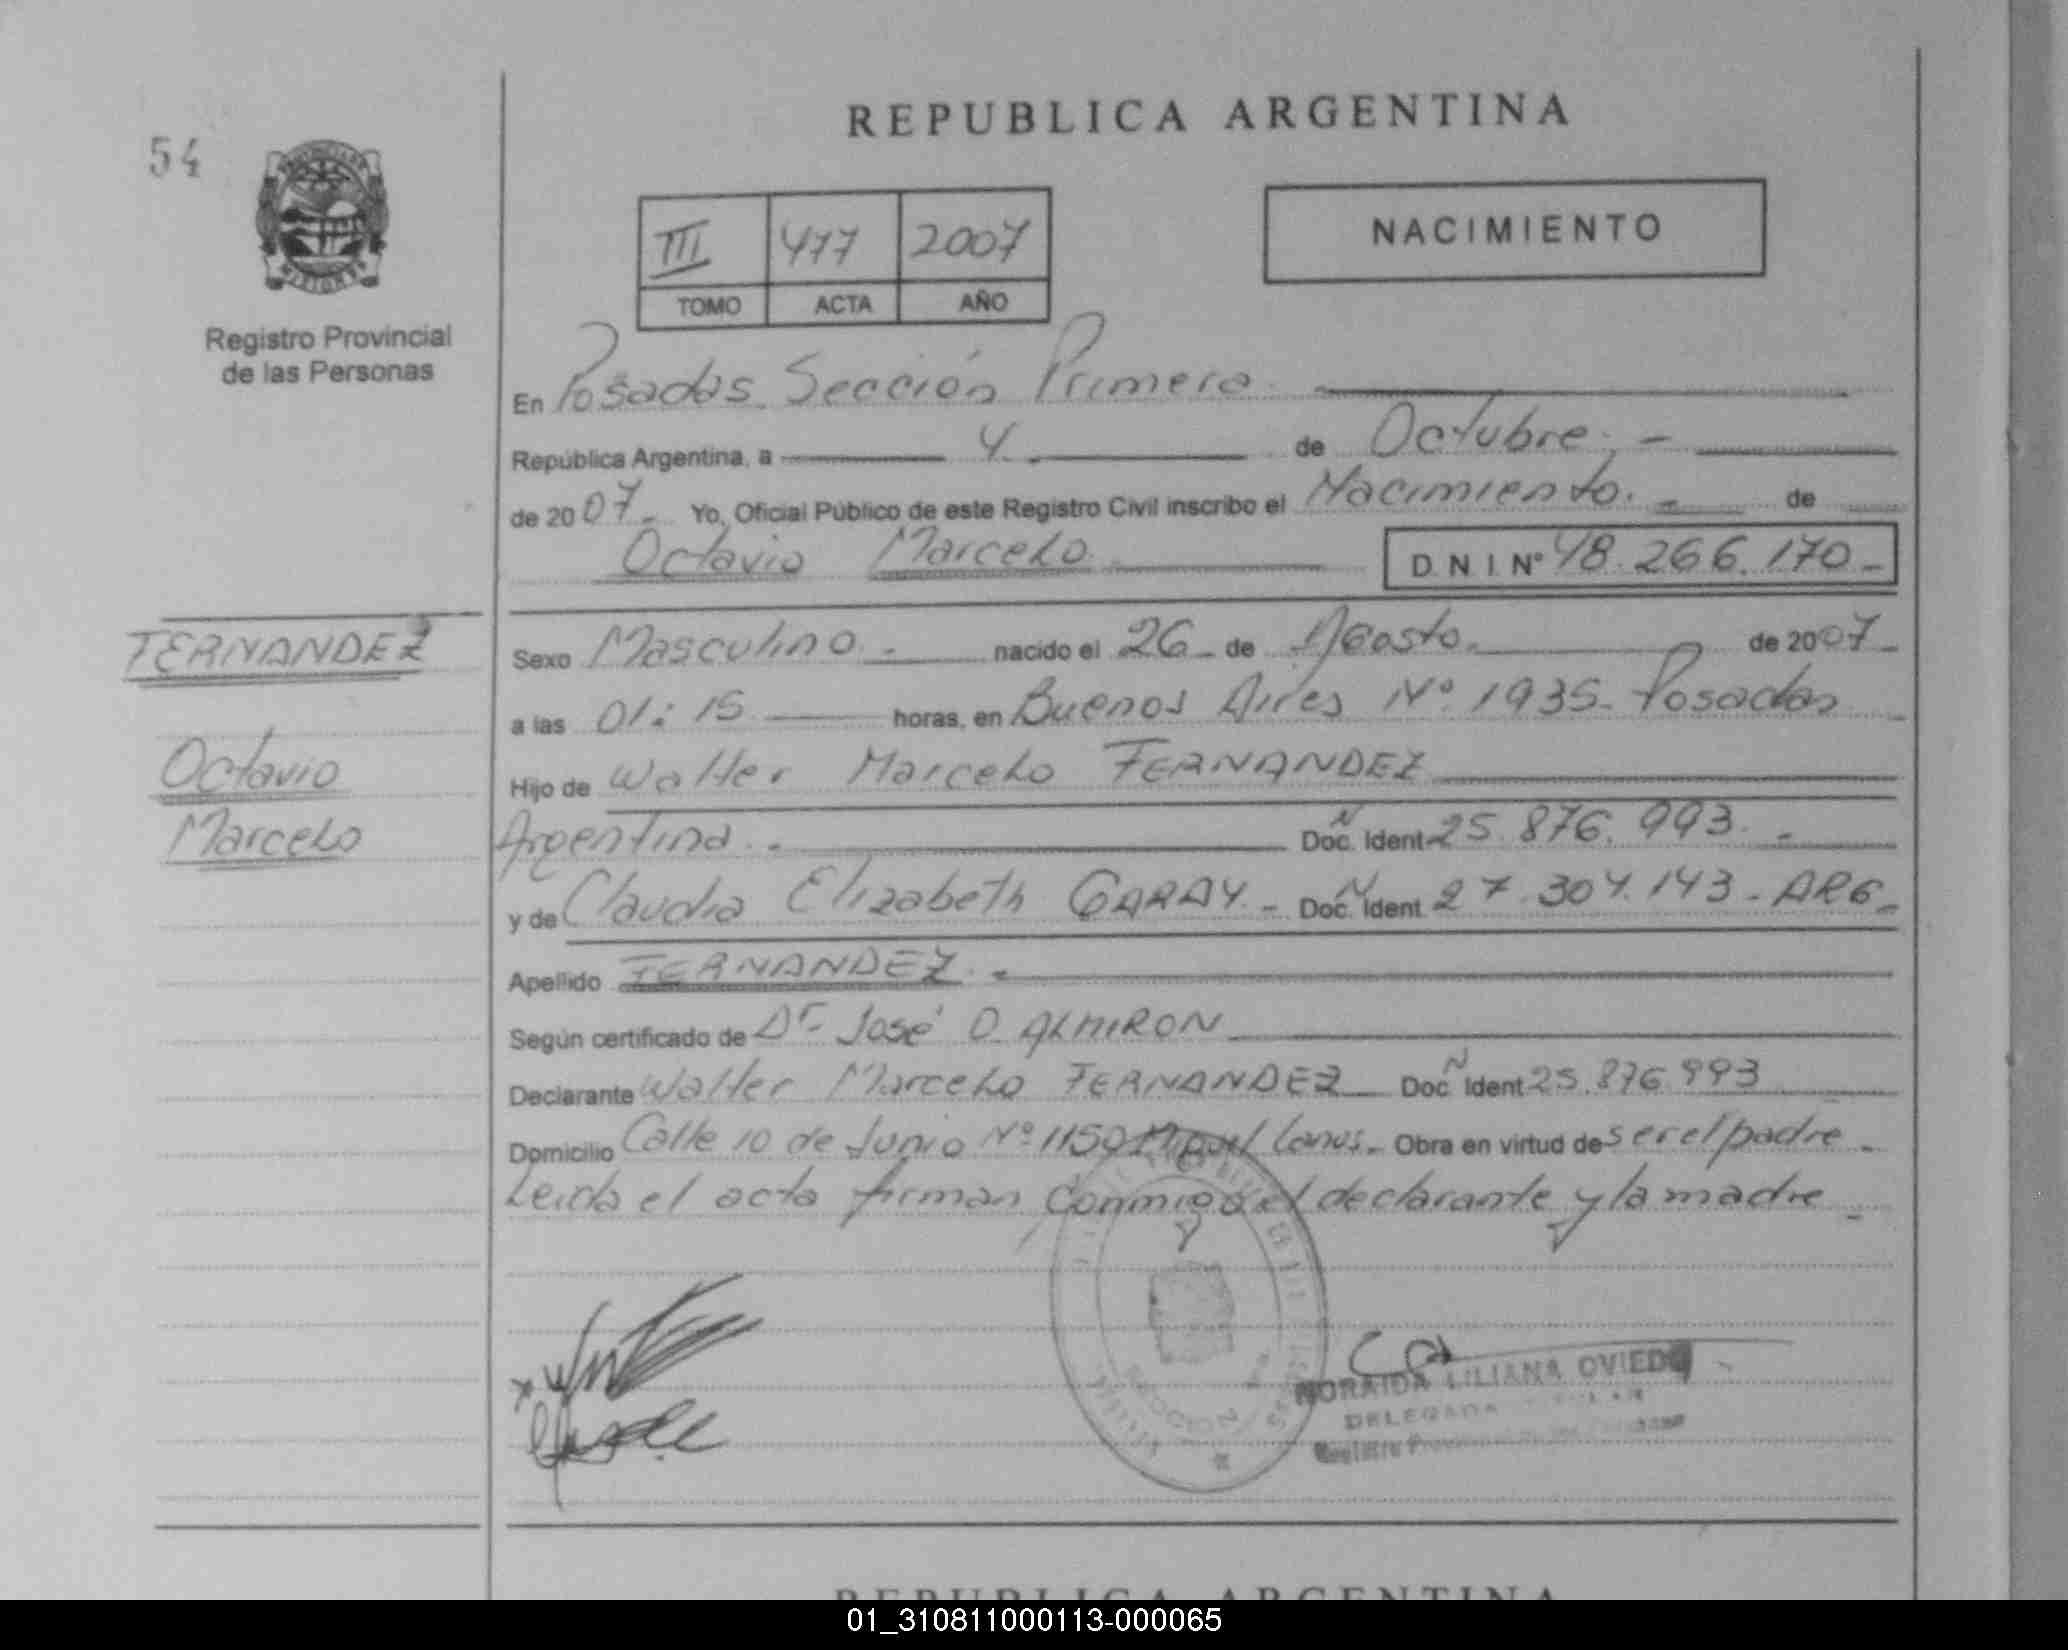 54
REPUBLICA ARGENTINA
NACIMIENTO
III 477 2007
TOMO ACTA AÑO
Registro Provincial
de las Personas
En Posadas Sección Primera.
República Argentina, a 4 de Octubre. -
de 2007 - Yo, Oficial Público de este Registro Civil inscribo el Nacimiento. - de
Octavio Marcelo. D.N.I. Nº 48.266.170 -
FERNANDEZ
Octavio
Marcelo
Sexo Masculino. - nacido el 26 - de Agosto. de 2007 -
a las 01:15 horas, en Buenos Aires Nº 1935 - Posadas
Hijo de Walter Marcelo FERNANDEZ
Argentina. - Doc. Ident N 25.876.993. -
y de Claudia Elizabeth GARAY. - Doc. Ident. N 27.304.143 - ARG -
Apellido FERNANDEZ. -
Según certificado de Dr. José O. ALMIRON
Declarante Walter Marcelo FERNANDEZ Doc. Ident N 25.876.993
Domicilio Calle 10 de Junio Nº 1150 Miguel Lanus. - Obra en virtud de ser el padre -
Leida el acta firman conmigo el declarante y la madre -
NORAIDA LILIANA OVIEDO
DELEGADA
Registro
REPUBLICA ARGENTINA
01_310811000113-000065